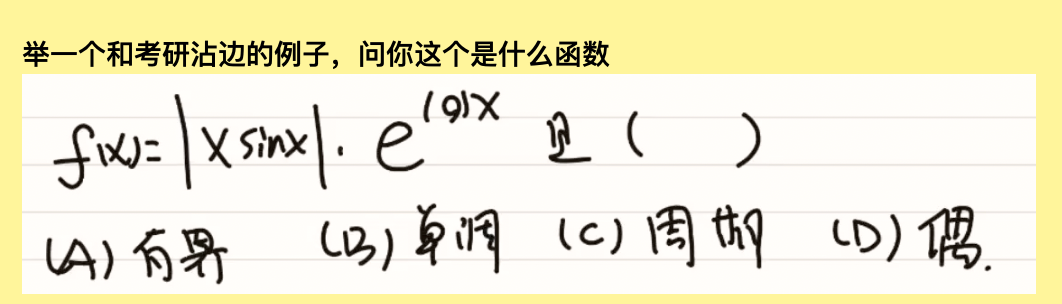 举一个和考研沾边的例子，问你这个是什么函数
f(x)=|x sinx|·e^(cosx) 是（ ）
(A) 有界 (B) 单调 (C) 周期 (D) 偶.